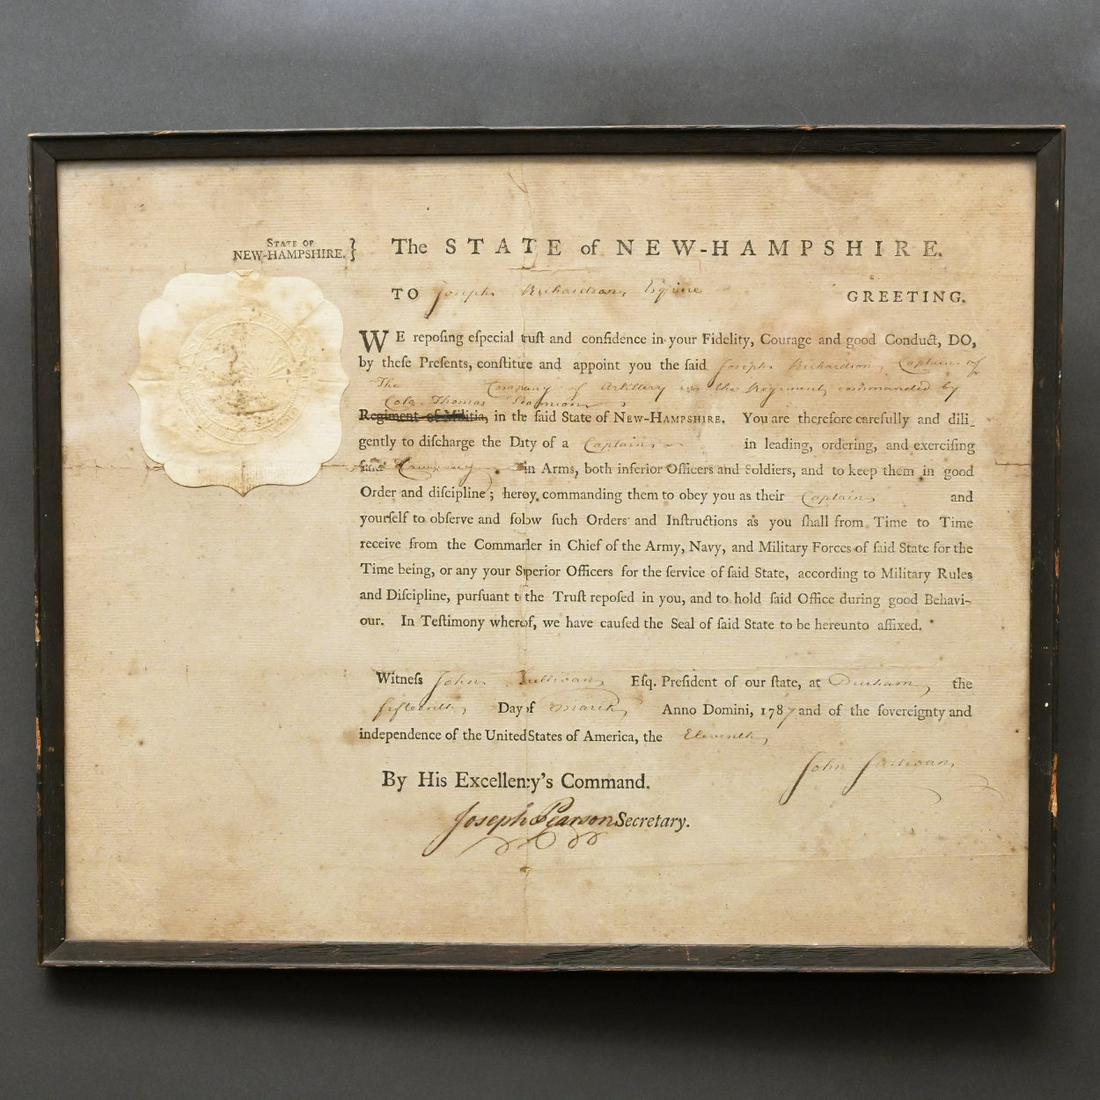 STATE OF
NEW-HAMPSHIRE. }
The STATE of NEW-HAMPSHIRE.
TO Joseph Richardson, Esquire GREETING.
WE reposing eſpecial truſt and confidence in your Fidelity, Courage and good Conduct, DO,
by theſe Preſents, conſtitute and appoint you the ſaid Joseph Richardson, Captain of
The Company of Artillery in the Regiment commanded by
Colo. Thomas
Regiment of Militia, in the ſaid State of NEW-HAMPSHIRE. You are therefore carefully and dili-
gently to diſcharge the Duty of a Captain in leading, ordering, and exerciſing
ſaid Company in Arms, both inferior Officers and Soldiers, and to keep them in good
Order and diſcipline; hereby commanding them to obey you as their Captain, and
yourſelf to obſerve and follow ſuch Orders and Inſtructions as you ſhall from Time to Time
receive from the Commander in Chief of the Army, Navy, and Military Forces of ſaid State for the
Time being, or any your Superior Officers for the ſervice of ſaid State, according to Military Rules
and Diſcipline, purſuant to the Truſt repoſed in you, and to hold ſaid Office during good Behavi-
our. In Teſtimony whereof, we have cauſed the Seal of ſaid State to be hereunto affixed.
Witneſs John Sullivan, Eſq. Preſident of our ſtate, at Durham, the
fifteenth, Day of March, Anno Domini, 1787 and of the ſovereignty and
independence of the United States of America, the Eleventh,
John Sullivan,
By His Excellency's Command.
Joseph Pearson Secretary.